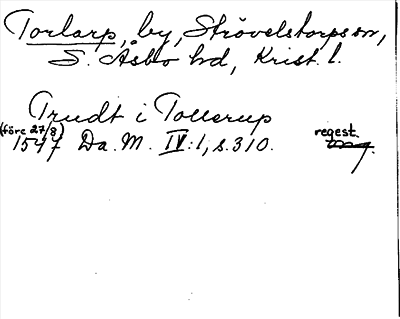 Torlarp, by, Strövelstorps sn,
S. Åsbo hd, Krist. l.
Trudt i Tollerup
(före 27/8)
1547 Da. M. IV:1, s. 310.
regest.